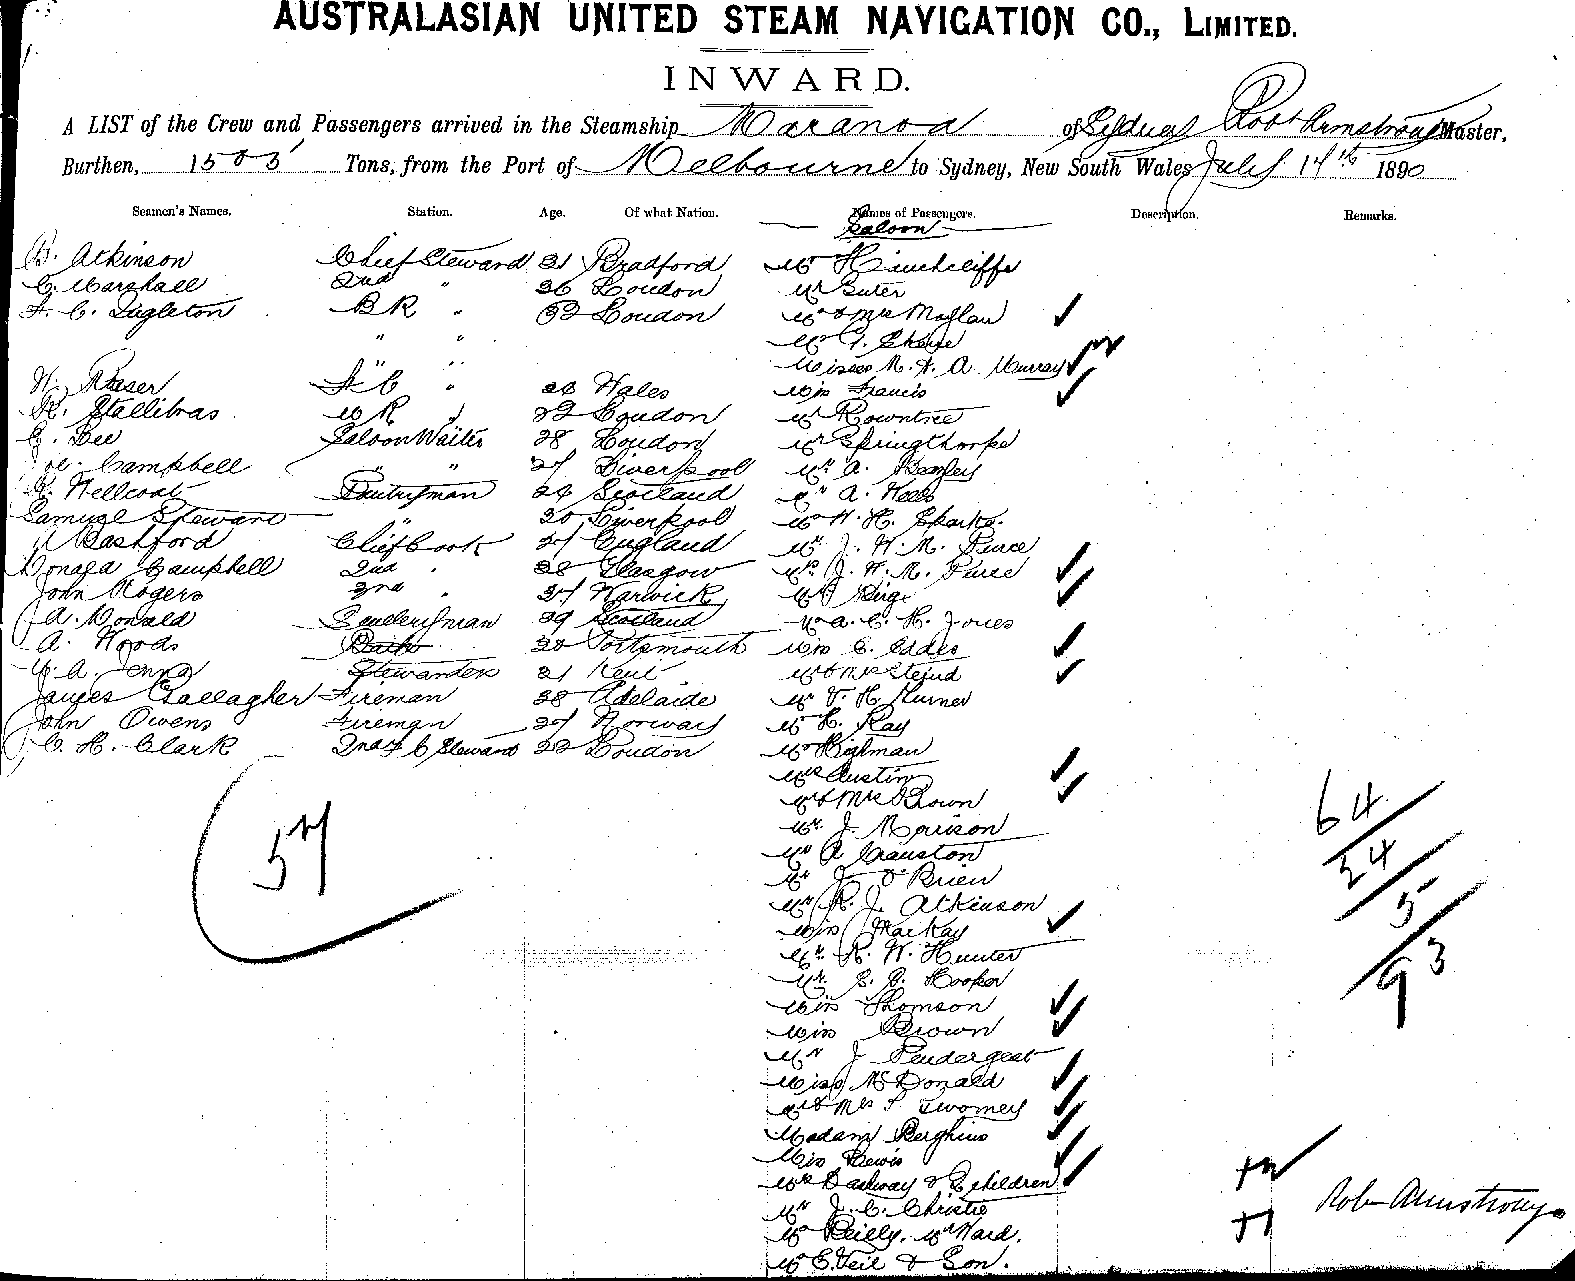 AUSTRALASIAN UNITED STEAM NAVIGATION CO., LIMITED.
INWARD.
A LIST of the Crew and Passengers arrived in the Steamship Maranoa of Sydney Robt Armstrong Master,
Burthen, 1505 Tons, from the Port of Melbourne to Sydney, New South Wales July 14th 1890
Seamen's Names. Station. Age. Of what Nation. Names of Passengers. Description. Remarks.
Saloon
B. Atkinson Chief Steward 31 Bradford Mr Hinchcliffe
C. Marshall 2nd " 36 London Mr Suter
F. C. Ingleton BR " London Mr & Mrs
" " Mr G.
" " Misses M. & A. Murray
W. Fraser F C " 24 Wales Miss Francis
R. Stallibras " London Mr Rowntree
C. Lee Saloon Waiter 28 London Mr Springthorpe
Campbell " " 27 Liverpool Mr A.
R. Wellcoat Pantryman 24 Scotland Mr A. Webb
Samuel Steward " 20 Liverpool Mr W. H. Sparks.
Bashford Chief Cook 27 England Mr J. W. M. Pierce
Donald Campbell 2nd " 28 Glasgow Mrs J. W. M. Pierce
John Rogers 3rd " 27 Warwick
A. Donald Sculleryman 29 Scotland Mr A. C. H. Jones
A. Woods 20 Portsmouth Miss C. Eddes
Stewardess 31 Kent Mr & Mrs
James Gallagher Fireman 38 Adelaide Mr V. H. Turner
John Owens Fireman 27 Norway Mr H. Kay
C. H. Clark 2nd F C Steward 22 London Mr Highman
Mrs Austin
Mr & Mrs Brown
Mr. J. Morison
Mr R Causton
Mr J O'Brien
Mr R. J. Atkinson
Miss MacKay
Mr. R. W. Hunter
Mr. S. G. Hooper
Miss Thomson
Miss Brown
Mr J Pendergest
Miss McDonald
Mr & Mrs Twomey
Madam Berghius
Miss Lewis
Mrs & Children
Mr J. C. Christie
Mr Reilly. Mr Ward.
Mr C. Veil & Son.
57
64
24
5
93
Robt Armstrong